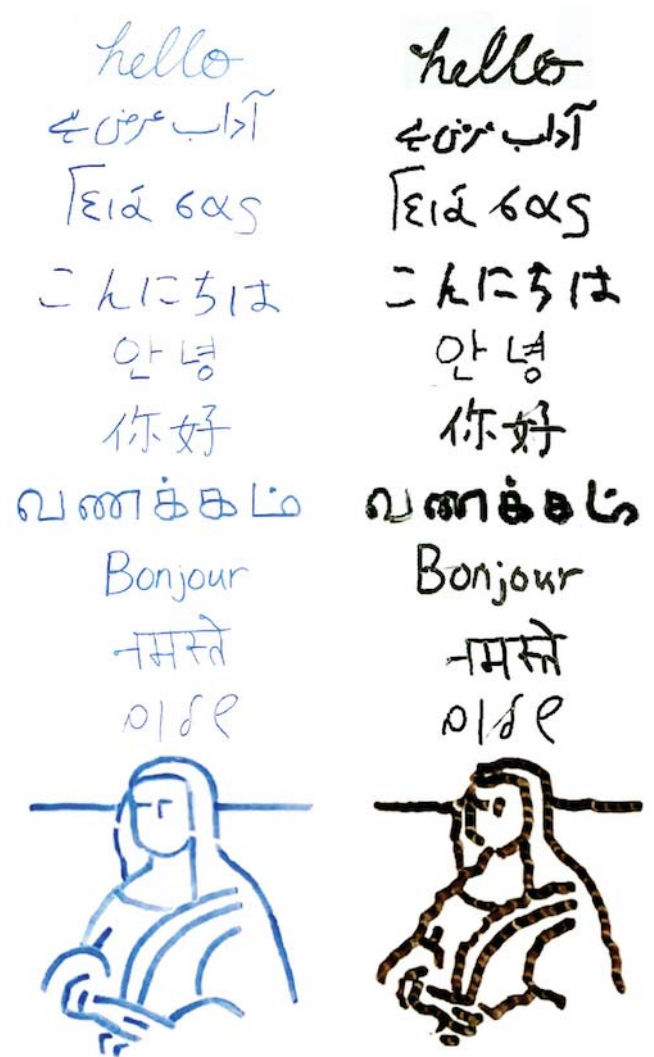 hello
آداب عرض ہے
Γειά σας
こんにちは
안녕
你好
வணக்கம்
Bonjour
नमस्ते
שלום
hello
آداب عرض ہے
Γειά σας
こんにちは
안녕
你好
வணக்கம்
Bonjour
नमस्ते
שלום